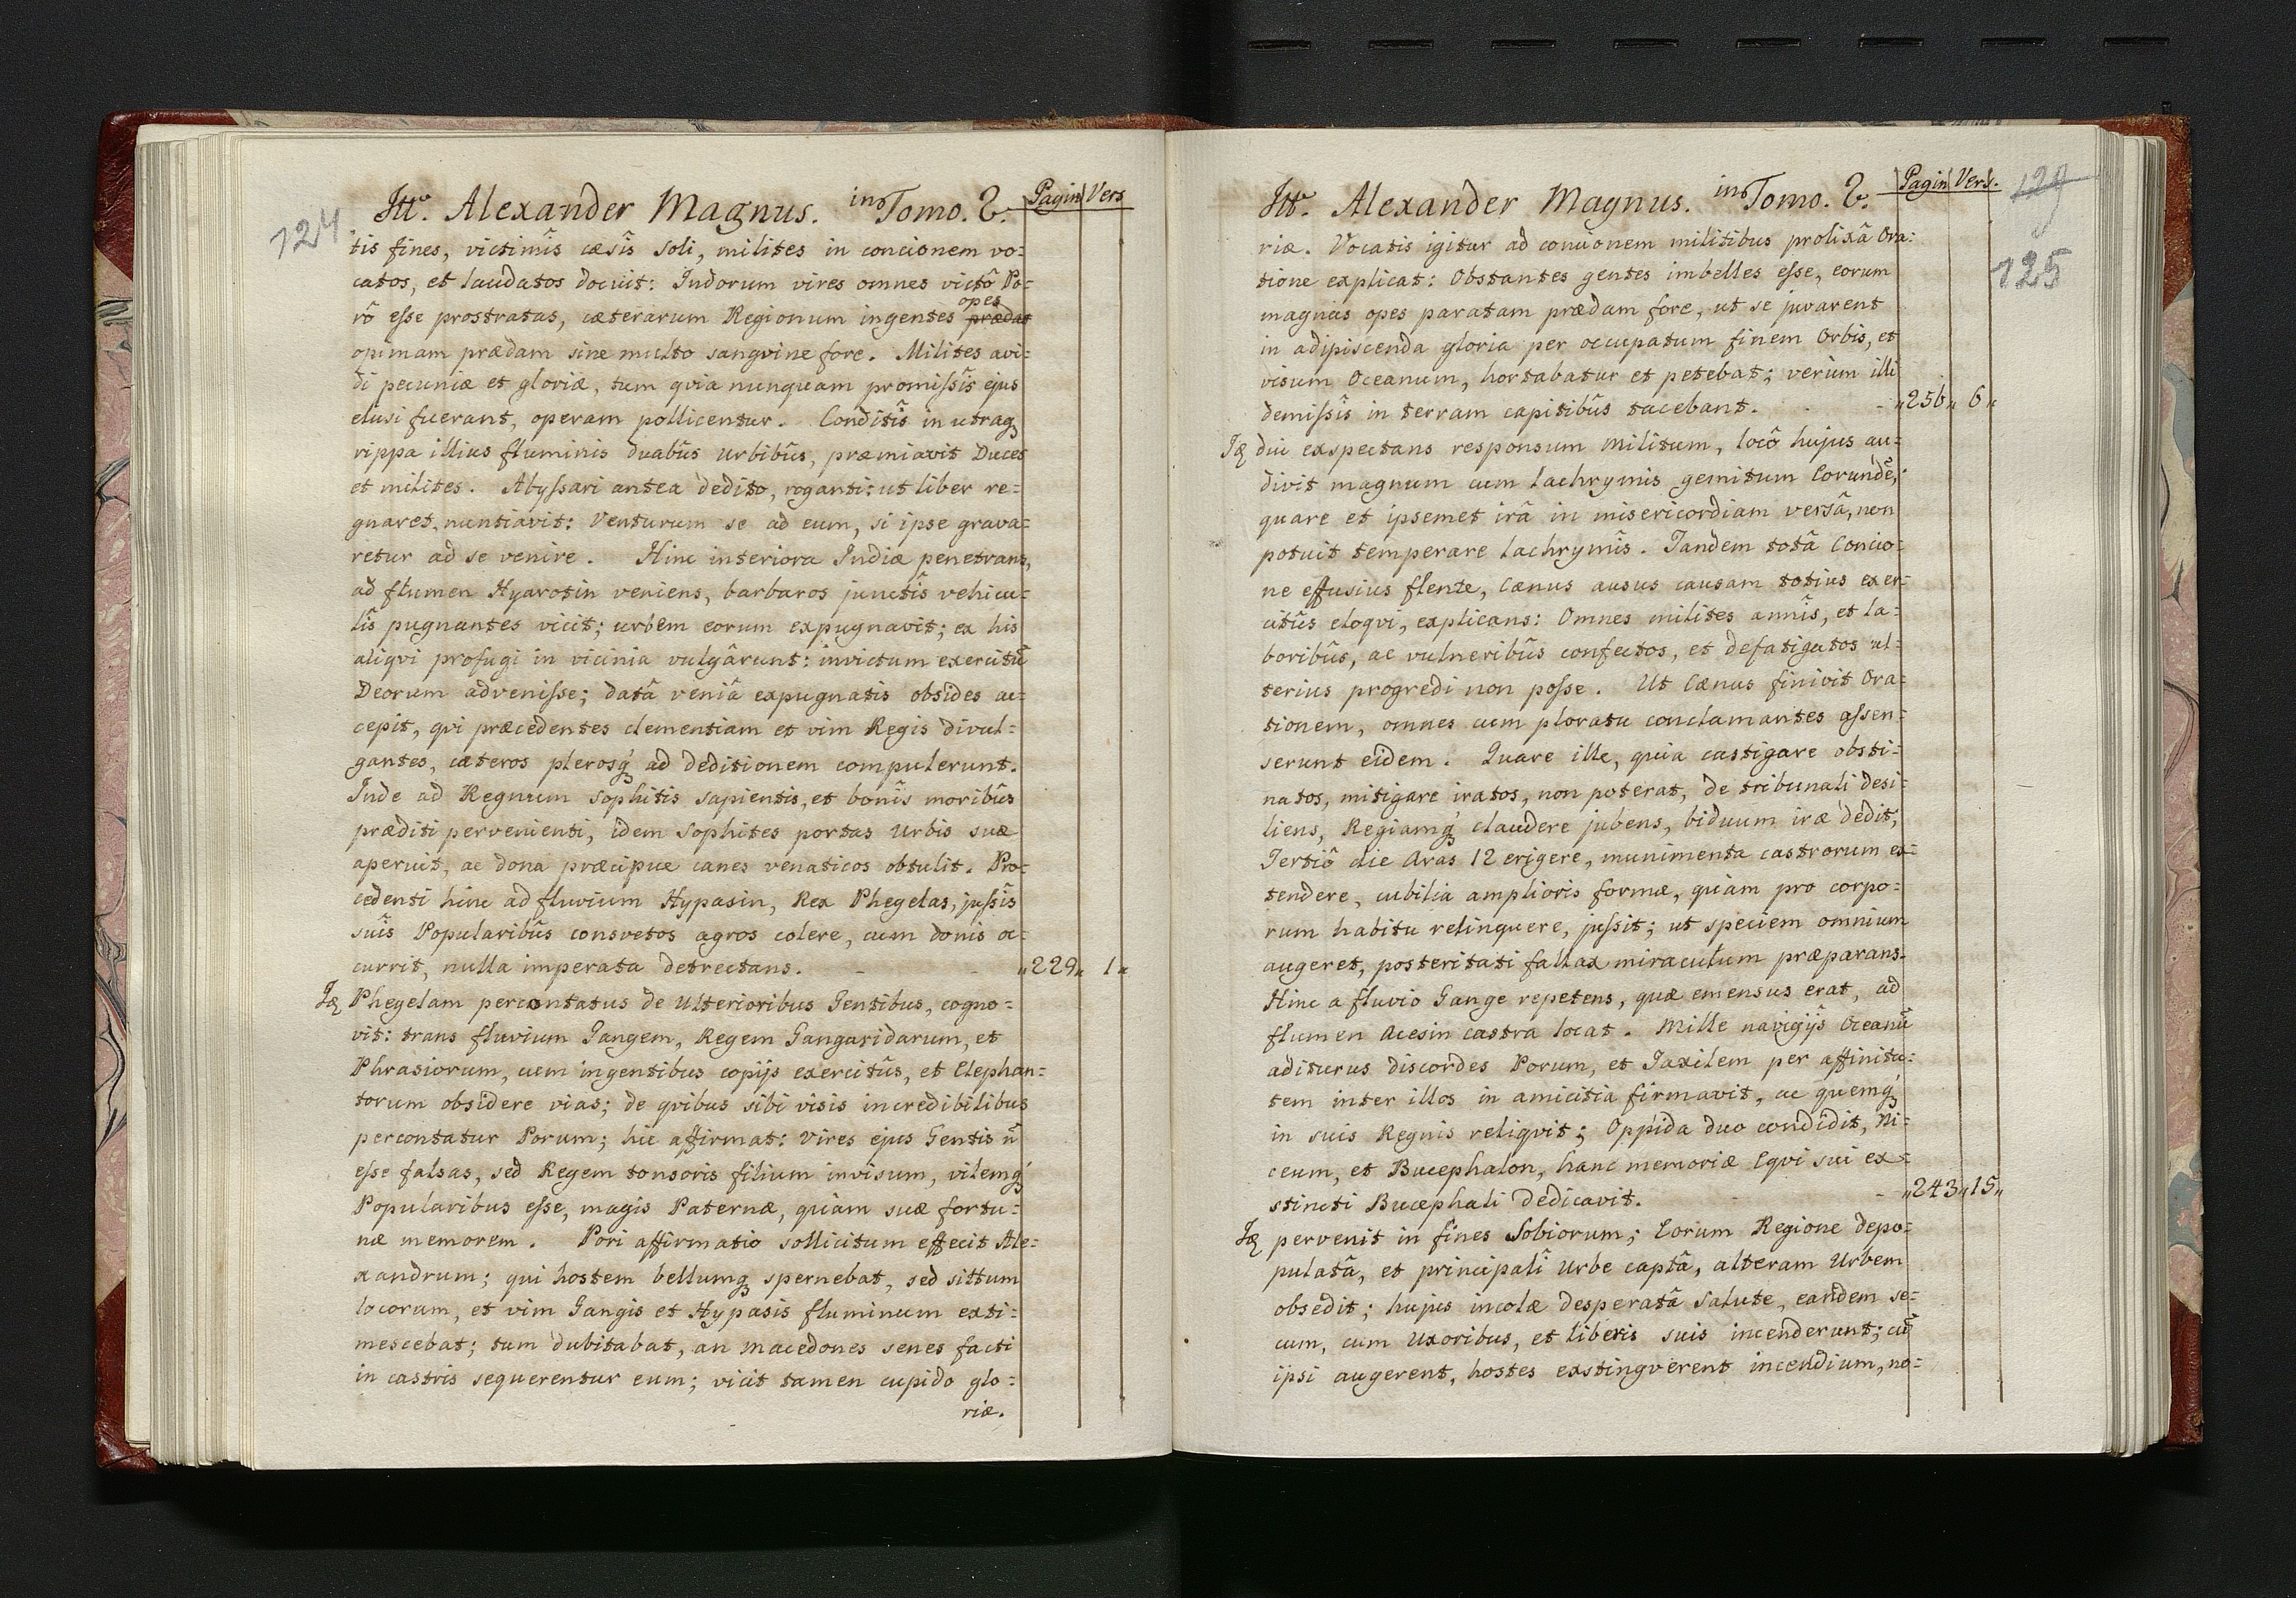 124
Itt. Alexander Magnus. in Tomo. 2. Pagin Vers
tis fines, victimîs cæsîs soli, milites in concionem vo=
catos, et laudatos docuit: Indorum vires omnes victô Po=
rô esse prostratas, cæterarum Regionum ingentes opes prædas
opimam prædam sine multo sangvine fore. Milites avi=
di pecuniæ et gloriæ, tum qvia nunquam promissîs ejus
elusi fuerant, operam pollicentur. Conditîs in utraq
rippa illius fluminis duabûs urbibûs, præmiavit Duces
et milites. Abyssari antea dedito, roganti: ut liber re=
gnaret, nuntiavit: Venturum se ad eum, si ipse grava=
retur ad se venire. Hinc interiora Indiæ penetrans,
ad flumen Hyarotin veniens, barbaros junctîs vehicu=
lîs pugnantes vicit; urbem eorum expugnavit; ex his
aliqvi profugi in vicinia vulgârunt: invictum exercitũ
Deorum advenisse; datâ veniâ expugnatis obsides ac=
cepit, qvi præcedentes clementiam et vim Regis divul=
gantes, cæteros plerosq́ ad deditionem compulerunt.
Inde ad Regnum Sophitis sapientis, et bonîs moribûs
præditi pervenienti, idem Sophites portas Urbis suæ
aperuit, ac dona præcipue canes venaticos obtulit. Pro=
cedenti hinc ad fluvium Hypasin, Rex Phegelas, jussîs
suîs Popularibûs consvetos agros colere, cum donis oc=
currit, nulla imperata detrectans. - - „229„ 1„
Iq Phegelam percontatus de Ulterioribus Gentibus, cogno=
vit: trans fluvium Gangem, Regem Gangaridarum, et
Phrasiorum, cum ingentibus copijs exercitûs, et Elephan=
torum obsidere vias; de qvibus sibi visis incredibilibus
percontatur Porum; hic affirmat: vires ejus Gentis ñ
esse falsas, sed Regem tonsoris filium invisum, vilemq́
Popularibus esse, magis Paternæ, quàm suæ fortu=
næ memorem. Pori affirmatio sollicitum effecit Ale=
xandrum; qui hostem bellumq spernebat, sed sittum
locorum, et vim Gangis et Hypasis fluminum exti=
mescebat; tum dubitabat, an Macedones senes facti
in castris sequerentur eum; vicit tamen cupido glo=
riæ.
Itt. Alexander Magnus. in Tomo. 2. Pagin Vers. 129
125
riæ. Vocatis igitur ad concionem militibus prolixâ Ora=
tione explicat: Obstantes gentes imbelles esse, eorum
magnas opes paratam prædam fore, ut se juvarent
in adipiscenda gloria per occupatum finem Orbis, et
visum Oceanum, hortabatur et petebat; verùm illi
demissîs in terram capitibûs tacebant. - - „256„ 6„
Iq diu exspectans responsum Militum, locô hujus au=
divit magnum cum lachrymis gemitum Eorundẽ;
quare et ipsemet irâ in misericordiam versâ, non
potuit temperare lachrymîs. Tandem totâ Concio=
ne effusius flente, Cænus ausus causam totius exer=
citûs eloqvi, explicans: Omnes milites annîs, et la=
boribûs, ac vulneribûs confectos, et defatigatos ul=
terius progredi non posse. Ut Cænus finivit Ora=
tionem, omnes cum ploratu conclamantes assen=
serunt eidem. Quare ille, quia castigare obsti=
natos, mitigare iratos, non poterat, de tribunali desi=
liens, Regiamq́ claudere jubens, biduum iræ dedit;
Tertiô die Aras 12 erigere, munimenta castrorum ex=
tendere, cubilia amplioris formæ, quàm pro corpo=
rum habitu relinquere, jussit; ut speciem omnium
augeret, posteritati fallax miraculum præparans.
Hinc a fluvio Gange repetens, quæ emensus erat, ad
flumen Acesin castra locat. Mille navigijs Oceanũ
aditurus discordes Porum, et Taxilem per affinita=
tem inter illos in amicitia firmavit, ac quemq́
in suis Regnis reliqvit; Oppida duo condidit, Ni=
ceum, et Bucephalon, hanc memoriæ Eqvi sui ex=
stincti Bucephali dedicavit. - - „243„15„
Iq pervenit in fines Sobiorum; Eorum Regione depo=
pulatâ, et principali Urbe captâ, alteram Urbem
obsedit; hujus incolæ desperatâ salute, eandem se=
cum, cum Uxoribus, et liberis suis incenderunt; cũ
ipsi augerent, hostes exstingverent incendium, no=